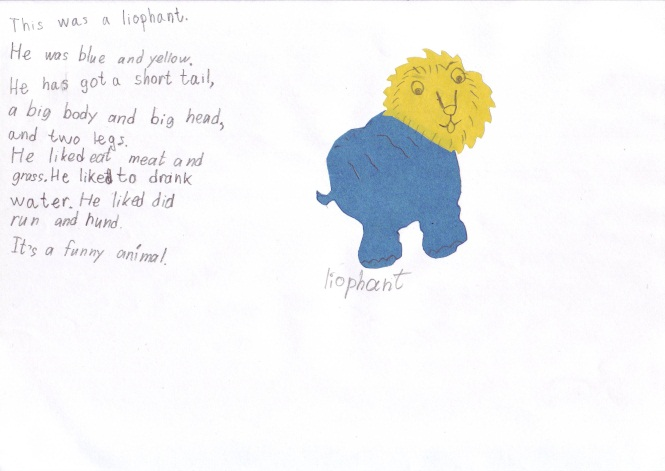 This was a liophant.
He was blue and yellow.
He has got a short tail,
a big body and big head,
and two legs.
He liked eat meat and
grass. He liked to drank
water. He liked did
run and hund.
It's a funny animal.
liophant